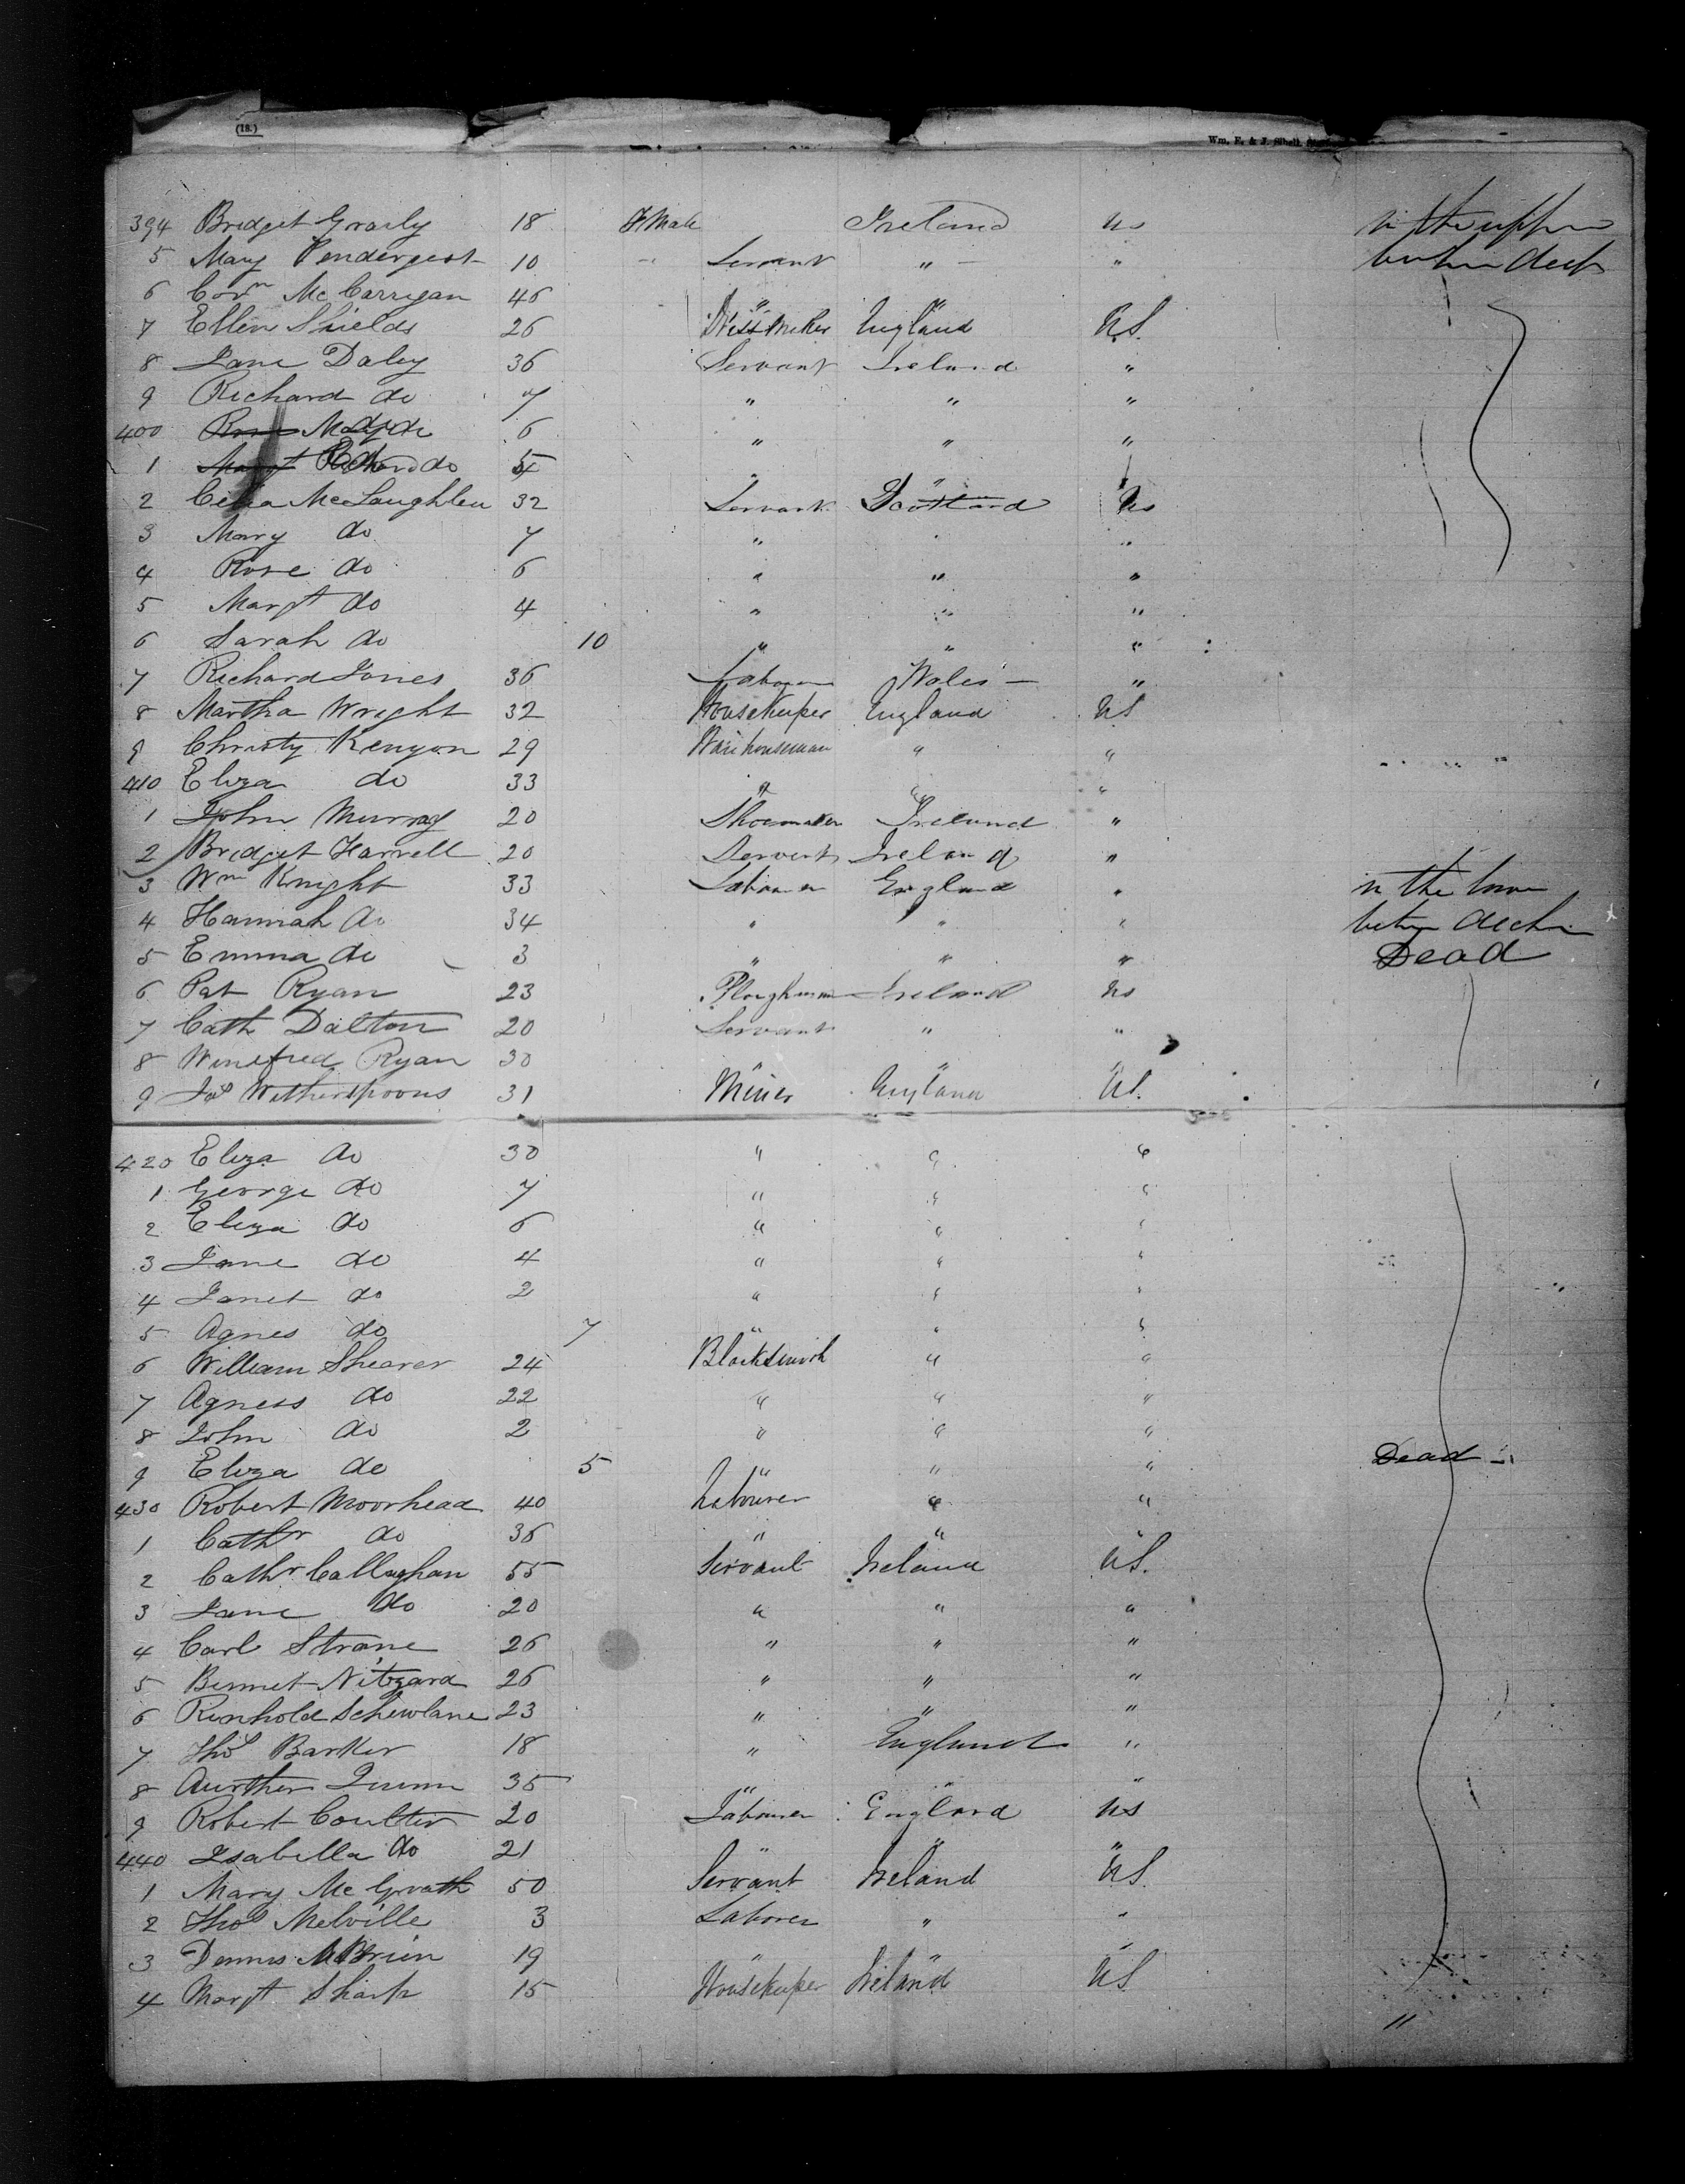 (18.)
Wm. F. & J. Sibell,
394 Bridget Graily 18 Fmale Ireland us in the upper
5 Mary Pendergest 10 " Servant " " between decks
6 Corn McCarrigan 46 " "
7 Ellen Shields 26 Dressmaker England U.S.
8 Jane Daley 36 Servant Ireland "
9 Richard do 7 " " "
400 Mary do 6 " " "
1 Richard do 5 " "
2 Celia McLaughlen 32 Servant Scotland us
3 Mary do 7 " " "
4 Rose do 6 " " "
5 Margt do 4 " " "
6 Sarah do 10 " " "
7 Richard Jones 36 Laborer Wales — "
8 Martha Wright 32 Housekeeper England US
9 Christy Kenyon 29 Warehouseman " "
410 Eliza do 33 " " "
1 John Murray 20 Shoemaker Ireland "
2 Bridget Harrell 20 Servant Ireland "
3 Wm Knight 33 Labourer England " in the lower
4 Hannah do 34 " " " between decks
5 Emma do 3 " " " Dead
6 Pat Ryan 23 Ploughman Ireland us
7 Cath Dalton 20 Servant " "
8 Winefred Ryan 30 " "
9 Jas Witherspoons 31 Miner England US.
420 Eliza do 30 " " "
1 George do 7 " " "
2 Eliza do 6 " " "
3 Jane do 4 " " "
4 Janet do 2 " " "
5 Agnes do 7 " " "
6 William Shearer 24 Blacksmith " "
7 Agness do 22 " " "
8 John do 2 " " "
9 Eliza do 5 " " " Dead
430 Robert Moorhead 40 Labourer " "
1 Cathr do 36 " " "
2 Cathr Callaghan 55 Servant Ireland US.
3 Jane do 20 " " "
4 Carl Strane 26 " " "
5 Bennet Nitzgard 26 " " "
6 Rinhold Schewlane 23 " " "
7 Thos Barker 18 " England "
8 Aurther Quinn 35 " " "
9 Robert Coulter 20 Labourer England us
440 Isabella do 21 " " "
1 Mary McGrath 50 Servant Ireland US.
2 Thos Melville 3 Laborer " "
3 Dennis McBrien 19 " " "
4 Margt Sharp 15 Housekeeper Ireland US "